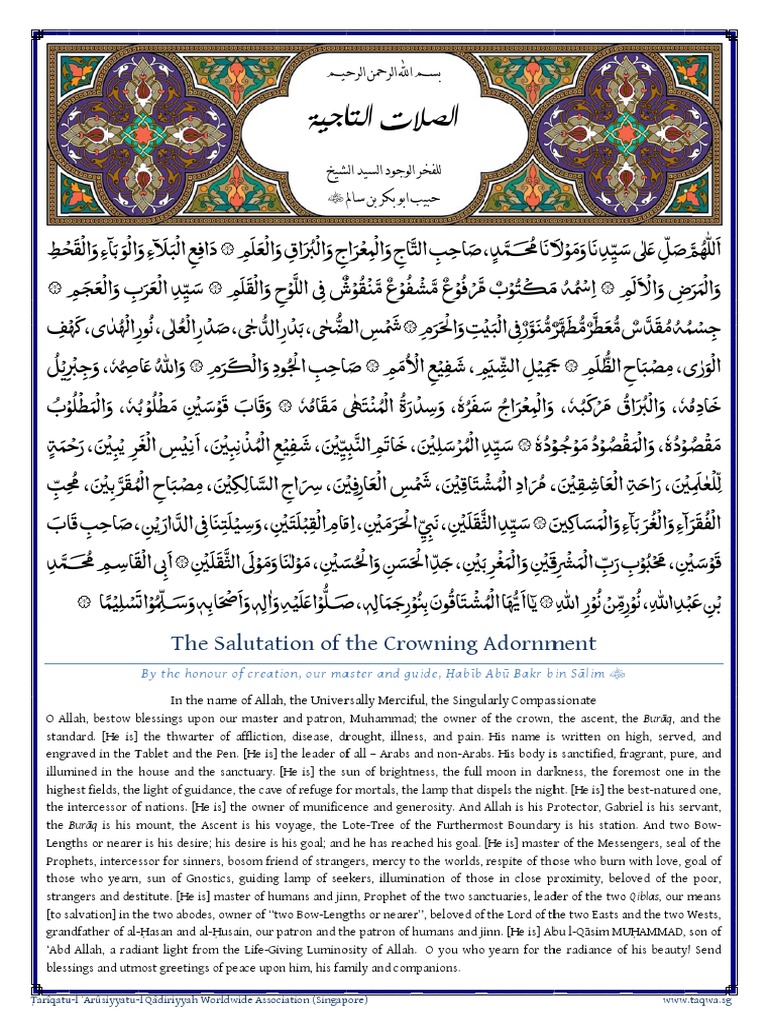 بسم الله الرحمن الرحيم
الصلات التاجية
للفخر الوجود السيد الشيخ
حبيب ابو بكر بن سالم ﷺ
اَللّٰهُمَّ صَلِّ عَلٰى سَيِّدِنَا وَمَوْلَانَا مُحَمَّدٍ، صَاحِبِ التَّاجِ وَالْمِعْرَاجِ وَالْبُرَاقِ وَالْعَلَمِ ۞ دَافِعِ الْبَلَآءِ وَالْوَبَآءِ وَالْقَحْطِ
وَالْمَرَضِ وَالْاَلَمِ ۞ اِسْمُهٗ مَكْتُوْبٌ مَّرْفُوْعٌ مَّشْفُوْعٌ مَّنْقُوْشٌ فِى اللَّوْحِ وَالْقَلَمِ ۞ سَيِّدِ الْعَرَبِ وَالْعَجَمِ ۞
جِسْمُهٗ مُقَدَّسٌ مُّعَطَّرٌ مُّطَهَّرٌ مُّنَوَّرٌ فِى الْبَيْتِ وَالْحَرَمِ ۞ شَمْسِ الضُّحٰى، بَدْرِ الدُّجٰى، صَدْرِ الْعُلٰى، نُورِ الْهُدٰى، كَهْفِ
الْوَرٰى، مِصْبَاحِ الظُّلَمِ ۞ جَمِيْلِ الشِّيَمِ، شَفِيْعِ الْاُمَمِ ۞ صَاحِبِ الْجُودِ وَالْكَرَمِ ۞ وَاللهُ عَاصِمُهٗ، وَجِبْرِيْلُ
خَادِمُهٗ، وَالْبُرَاقُ مَرْكَبُهٗ، وَالْمِعْرَاجُ سَفَرُهٗ، وَسِدْرَةُ الْمُنْتَهٰى مَقَامُهٗ ۞ وَقَابَ قَوْسَيْنِ مَطْلُوْبُهٗ، وَالْمَطْلُوْبُ
مَقْصُوْدُهٗ، وَالْمَقْصُوْدُ مَوْجُوْدُهٗ ۞ سَيِّدِ الْمُرْسَلِيْنَ، خَاتَمِ النَّبِيِّيْنَ، شَفِيْعِ الْمُذْنِبِيْنَ، اَنِيْسِ الْغَرِيْبِيْنَ، رَحْمَةٍ
لِّلْعٰلَمِيْنَ، رَاحَةِ الْعَاشِقِيْنَ، مُرَادِ الْمُشْتَاقِيْنَ، شَمْسِ الْعَارِفِيْنَ، سِرَاجِ السَّالِكِيْنَ، مِصْبَاحِ الْمُقَرَّبِيْنَ، مُحِبِّ
الْفُقَرَآءِ وَالْغُرَبَآءِ وَالْمَسَاكِيْنَ ۞ سَيِّدِ الثَّقَلَيْنِ، نَبِيِّ الْحَرَمَيْنِ، اِمَامِ الْقِبْلَتَيْنِ، وَسِيْلَتِنَا فِى الدَّارَيْنِ، صَاحِبِ قَابَ
قَوْسَيْنِ، مَحْبُوْبِ رَبِّ الْمَشْرِقَيْنِ وَالْمَغْرِبَيْنِ، جَدِّ الْحَسَنِ وَالْحُسَيْنِ، مَوْلٰنَا وَمَوْلَى الثَّقَلَيْنِ ۞ اَبِى الْقَاسِمِ مُحَمَّدِ
بْنِ عَبْدِ اللهِ، نُورٍ مِّنْ نُوْرِ اللهِ ۞ يٰآ اَيُّهَا الْمُشْتَاقُوْنَ بِنُوْرِ جَمَالِهٖ، صَلُّوْا عَلَيْهِ وَاٰلِهٖ وَاَصْحَابِهٖ وَسَلِّمُوْا تَسْلِيْمًا ۞
The Salutation of the Crowning Adornment
By the honour of creation, our master and guide, Habīb Abū Bakr bin Sālim
In the name of Allah, the Universally Merciful, the Singularly Compassionate
O Allah, bestow blessings upon our master and patron, Muhammad; the owner of the crown, the ascent, the Burāq, and the
standard. [He is] the thwarter of affliction, disease, drought, illness, and pain. His name is written on high, served, and
engraved in the Tablet and the Pen. [He is] the leader of all – Arabs and non-Arabs. His body is sanctified, fragrant, pure, and
illumined in the house and the sanctuary. [He is] the sun of brightness, the full moon in darkness, the foremost one in the
highest fields, the light of guidance, the cave of refuge for mortals, the lamp that dispels the night. [He is] the best-natured one,
the intercessor of nations. [He is] the owner of munificence and generosity. And Allah is his Protector, Gabriel is his servant,
the Burāq is his mount, the Ascent is his voyage, the Lote-Tree of the Furthermost Boundary is his station. And two Bow-
Lengths or nearer is his desire; his desire is his goal; and he has reached his goal. [He is] master of the Messengers, seal of the
Prophets, intercessor for sinners, bosom friend of strangers, mercy to the worlds, respite of those who burn with love, goal of
those who yearn, sun of Gnostics, guiding lamp of seekers, illumination of those in close proximity, beloved of the poor,
strangers and destitute. [He is] master of humans and jinn, Prophet of the two sanctuaries, leader of the two Qiblas, our means
[to salvation] in the two abodes, owner of "two Bow-Lengths or nearer", beloved of the Lord of the two Easts and the two Wests,
grandfather of al-Ḥasan and al-Ḥusain, our patron and the patron of humans and jinn. [He is] Abu l-Qāsim MUḤAMMAD, son of
'Abd Allah, a radiant light from the Life-Giving Luminosity of Allah. O you who yearn for the radiance of his beauty! Send
blessings and utmost greetings of peace upon him, his family and companions.
Ṭarīqatu-l 'Arūsiyyatu-l Qādiriyyah Worldwide Association (Singapore)
www.taqwa.sg